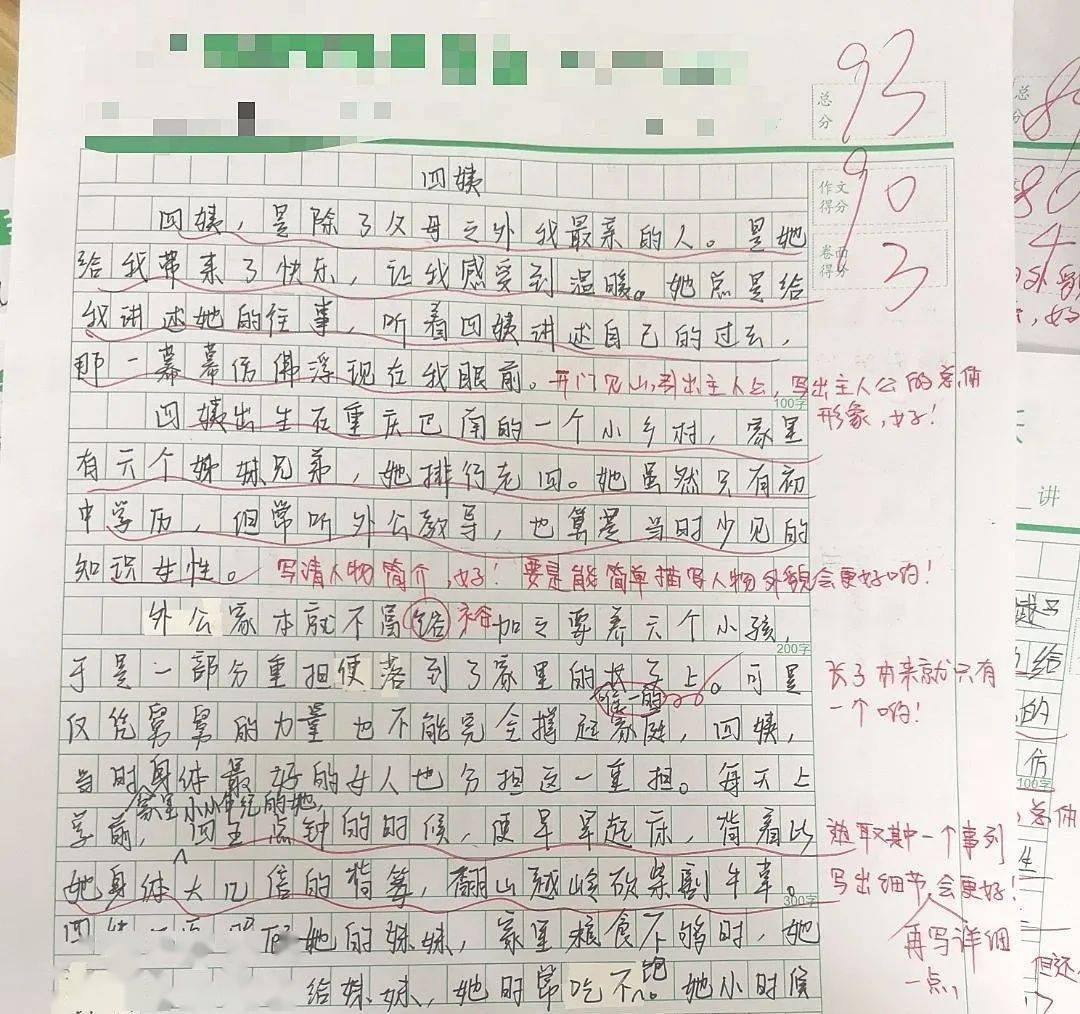 总分 93
作文得分 90
卷面得分 3
四姨
四姨，是除了父母之外我最亲的人。是她
给我带来了快乐，让我感受到温暖。她总是给
我讲述她的往事，听着四姨讲述自己的过去，
那一幕幕仿佛浮现在我眼前。
开门见山，引出主人公，写出主人公的总体
形象，好！
100字
四姨出生在重庆巴南的一个小乡村，家里
有六个姊妹兄弟，她排行老四。她虽然只有初
中学历，但常听外公教导，也算是当时少见的
知识女性。
写清人物简介，好！要是能简单描写人物外貌会更好哟！
外公家本就不富 裕 加之要养六个小孩，
200字
于是一部分重担便落到了家里的长子上。可是
唯一的
长子本来就只有
一个哟！
仅凭舅舅的力量也不能完全撑起家庭，四姨，
当时身体最好的女人也分担这一重担。每天上
家里
学前，四五点钟的时候，便早早起床，背着比
她身体大几倍的背篓，翻山越岭砍柴割牛草。
选取其中一个事例
写出细节，会更好！
再写详细
一点，
300字
她的妹妹，家里粮食不够时，她
给妹妹，她时常吃不饱。她小时候
总分
80
4
讲
给
的
仿
100字
总体
生
但还